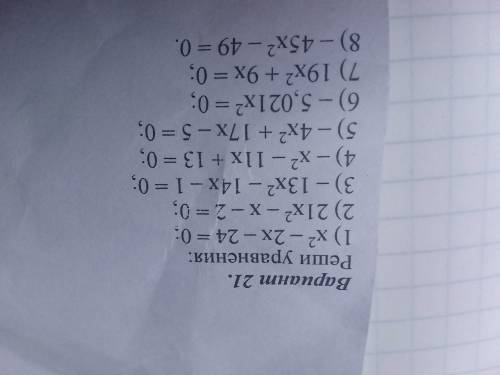 Вариант 21.
Реши уравнения:
1) x² – 2x – 24 = 0;
2) 21x² – x – 2 = 0;
3) – 13x² – 14x – 1 = 0;
4) – x² – 11x + 13 = 0;
5) – 4x² + 17x – 5 = 0;
6) – 5,021x² = 0;
7) 19x² + 9x = 0;
8) – 45x² – 49 = 0.